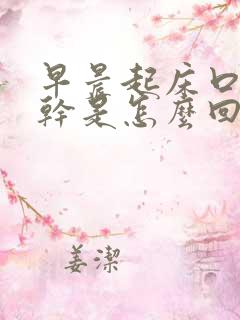 早晨起床口
幹是怎麼回
姜潔